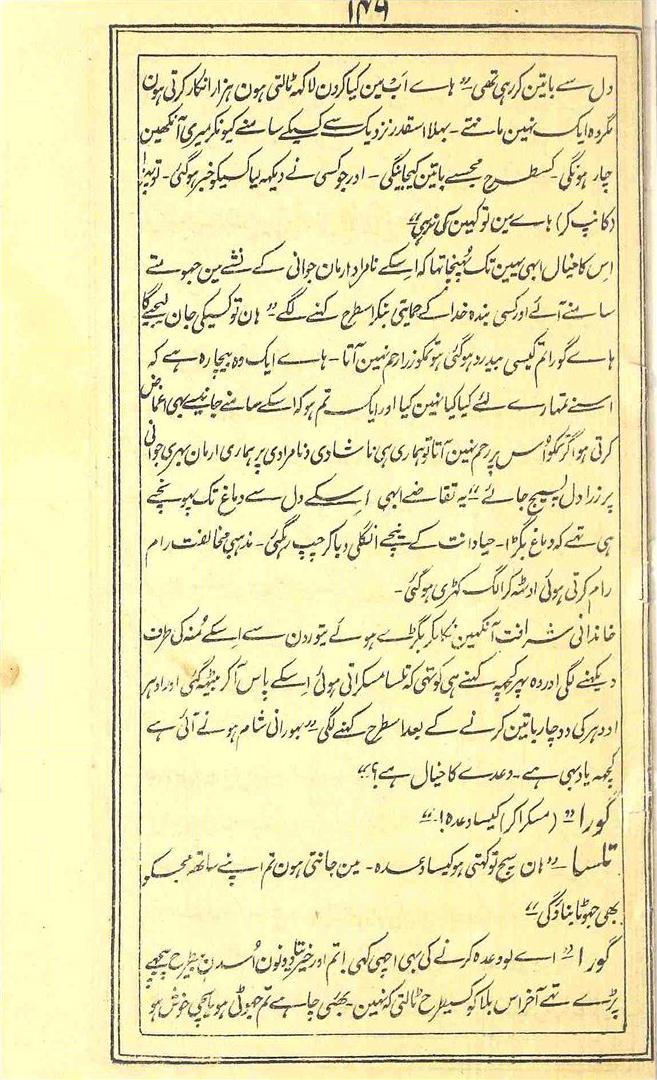 ۱۴۶
دل سے باتین کر رہی تھی "ہاے اَب مین کیا کرون لاکہہ ٹالتی ہون ہزار انکار کرتی ہون
مگر وہ ایک نہین مانتے ۔ بہلا اسقدر نزدیک سے کسیکے سامنے کیونکر میری آنکھین
چار ہونگی ۔ کسطرح مجسے باتین کیجاینگی ۔ اور جو کسی نے دیکہہ لیا کسیکو خبر ہوگئی ۔ تو پہر
(کانپ کر) ہاے مین تو کہین کی نرہی"
اِس کا خیال ابہی یہین تک پُہنچا تہا کہ اِسکے نامراد ارمان جوانی کے نشے مین جہومتے
سامنے آئے اور کسی بندہ خدا کے حمایتی بنکر اسطرح کہنے لگے "ہان تو کسیکی جان لیجیے گا
ہاے گورا تم کیسی بیدرد ہوگئی ہو تمکو زرا رحم نہین آتا ۔ ہاے ایک وہ بیچارہ ہے کہ
اسنے تمہارے لئے کیا کیا نہین کیا اور ایک تم ہو کہ اسکے سامنے جانیسے بہی اغماض
کرتی ہو اگر تمکو اُس پر رحم نہین آتا تو ہماری ہی ناشادی و نامرادی پر ہماری ارمان بہری جوانی
پر زرا دل پسیج جائے" یہ تقاضے ابہی اِسکے دل سے دماغ تک پہونچے
ہی تہے کہ دماغ بگڑا ۔ حیا دانت کے نیچے انگلی دباکر چپ رہگئی ۔ مذہبی مخالفت رام
رام کرتی ہوئی اوٹہہ کر الگ کہڑی ہوگئی ۔
خاندانی شرافت آنکھین نکالکر بگڑے ہوئے تیورون سے اِسکے مُنہ کی طرف
دیکہنے لگی اور وہ پہر کچہہ کہنے ہی کو تہی کہ تلسا مسکراتی ہوئی اِسکے پاس آکر بیٹہہ گئی اور ادہر
اودہر کی دو چار باتین کرنے کے بعد اسطرح کہنے لگی "بہورانی شام ہونے آئی ہے
کچہہ یاد بہی ہے ۔ وعدے کا خیال ہے؟"
گورا "(مسکراکر) کیسا وعدہ!"
تلسا ۔ "ہان سچ تو کہتی ہو کیسا وَعدہ ۔ مین جانتی ہون تم اپنے ساتھ مجہکو
بھی جہوٹا بناؤگی"
گورا "اے لو وعدہ کرنے کی بہی اچہی کہی! تم اور خیر تا دونون اُسدن بیطرح پیچہے
پڑے تہے آخر اس بلا کو کسیطرح ٹالتی کہ نہین ۔ بھئی چاہے تم جہوٹی ہو یا سچی خوش ہو